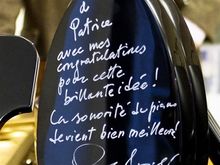 à
Patrice
avec mes
congratulations
pour cette
brillante idée!
La sonorité du piano
devient bien meilleure!